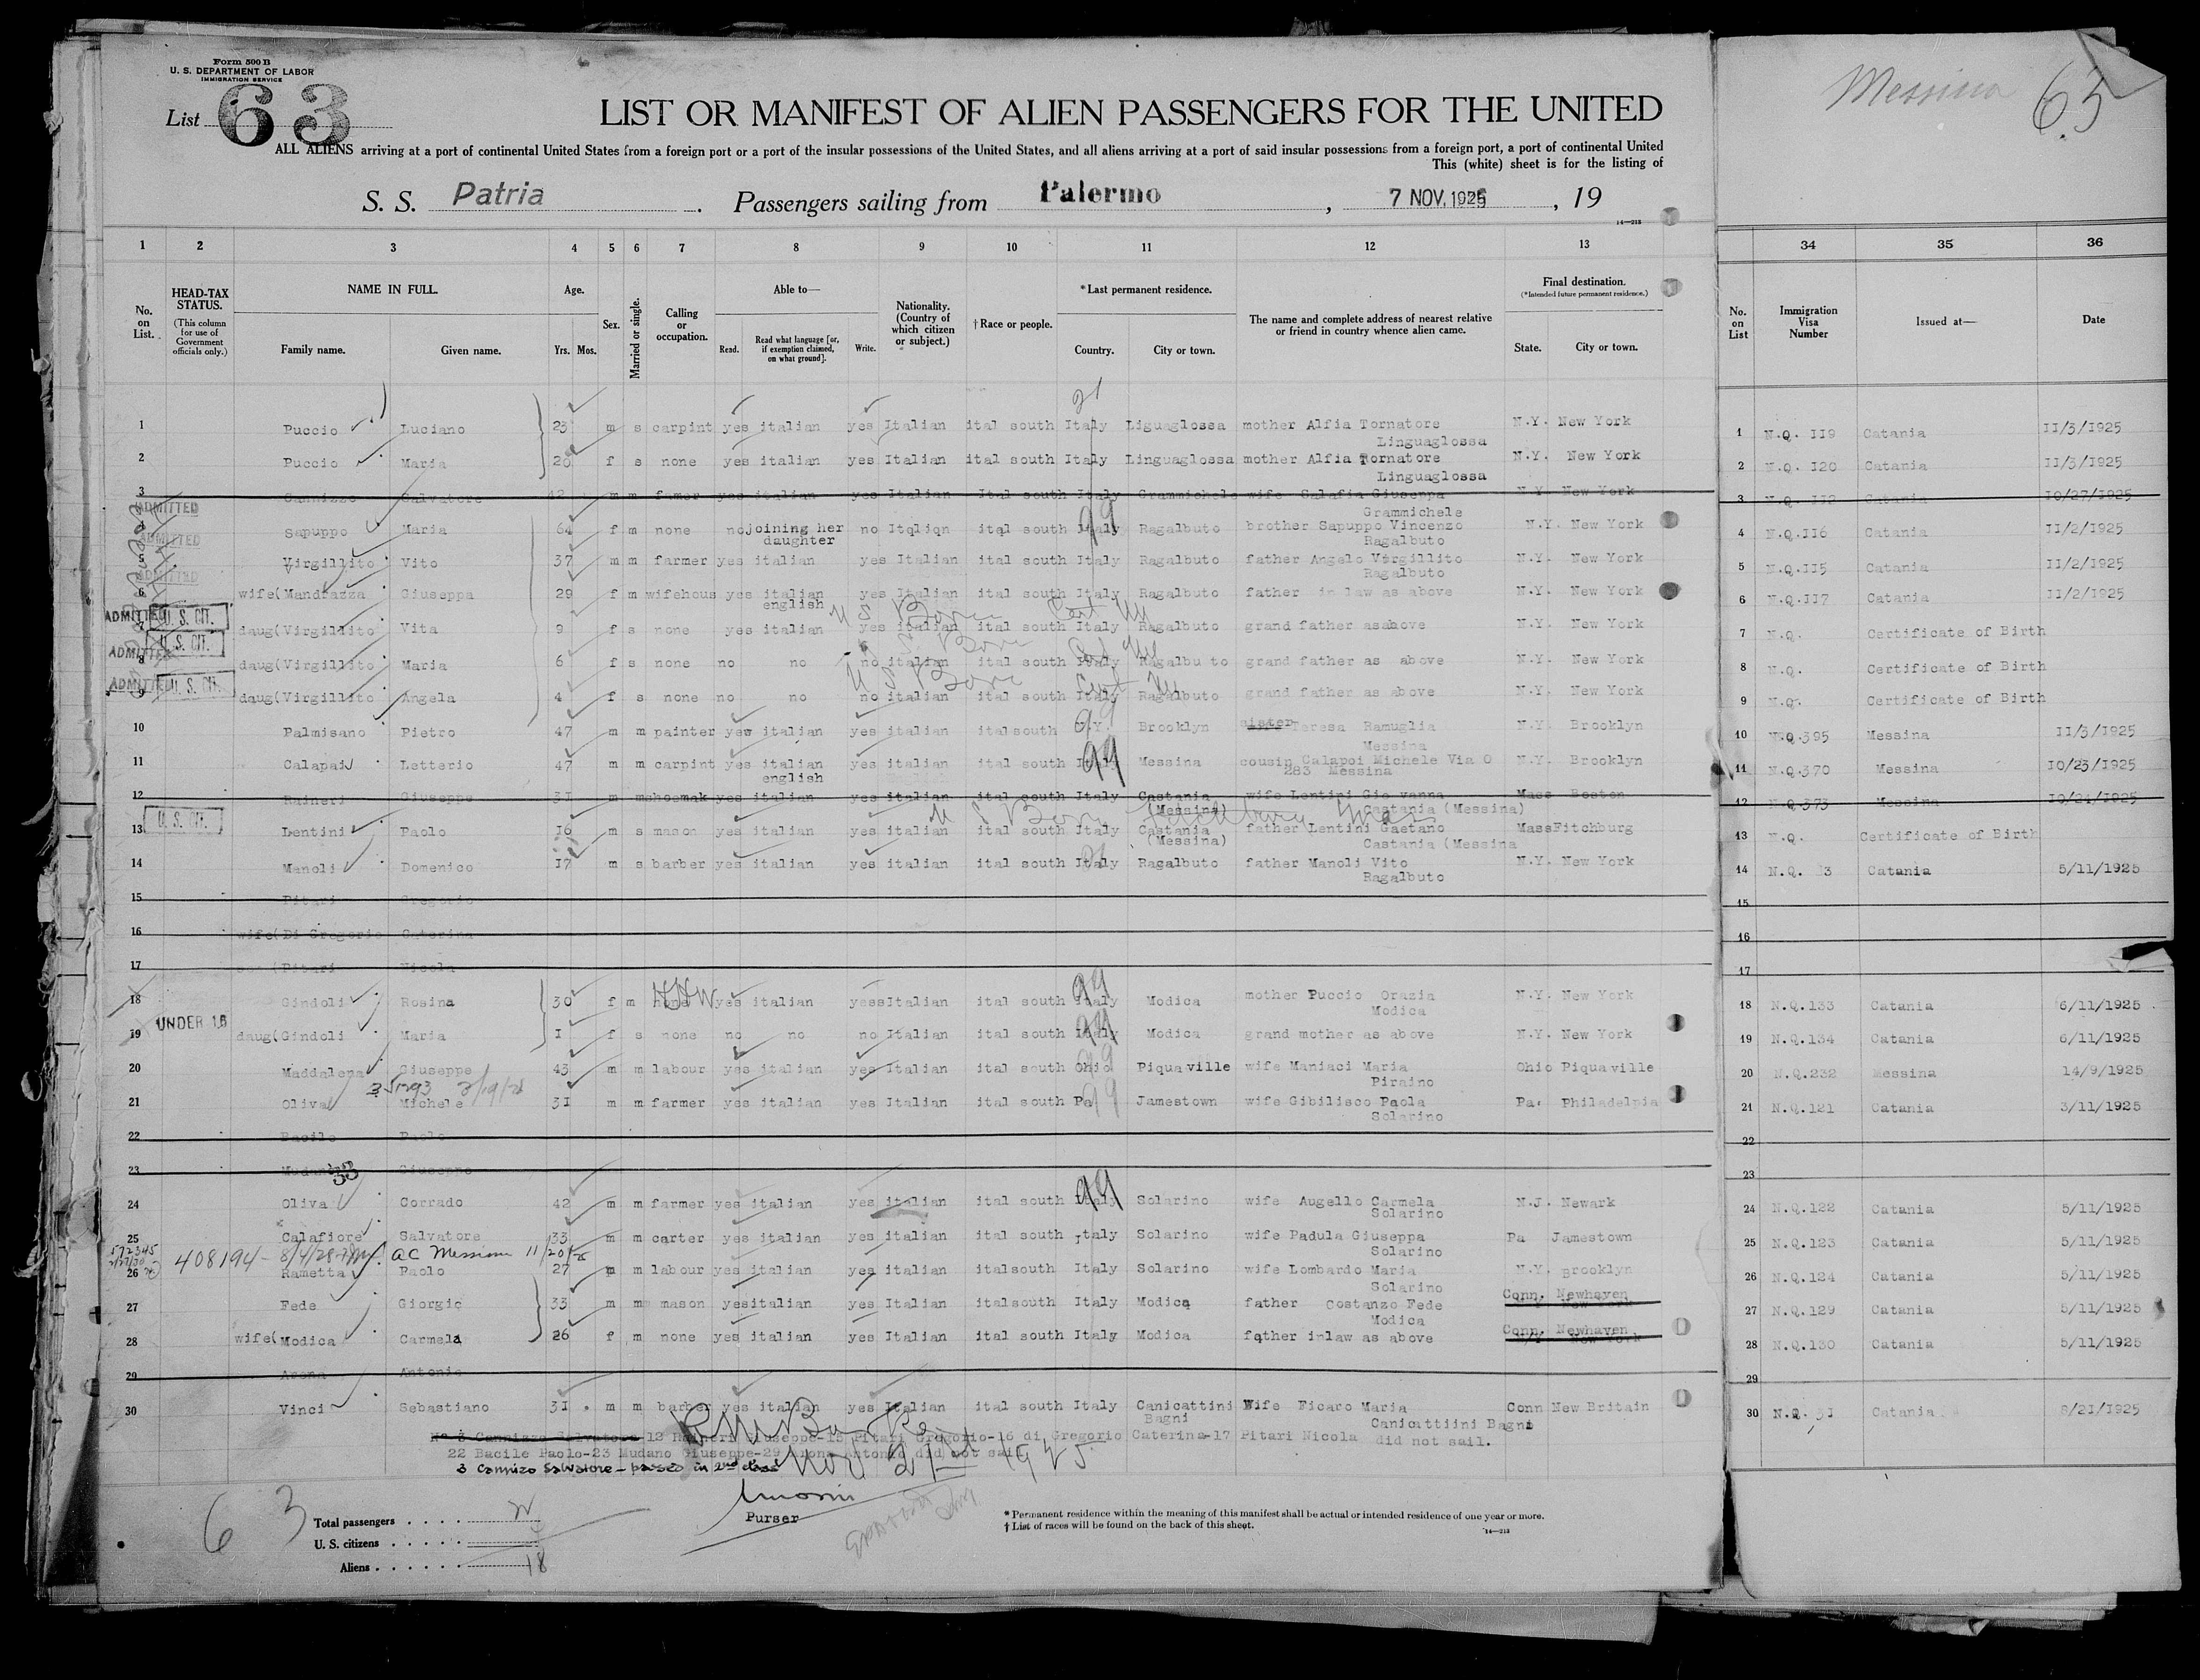 Form 500 B
U. S. DEPARTMENT OF LABOR
IMMIGRATION SERVICE
List 63
LIST OR MANIFEST OF ALIEN PASSENGERS FOR THE UNITED
ALL ALIENS arriving at a port of continental United States from a foreign port or a port of the insular possessions of the United States, and all aliens arriving at a port of said insular possessions from a foreign port, a port of continental United
This (white) sheet is for the listing of
S. S. Patria. Passengers sailing from Palermo, 7 NOV. 1925, 19
14—213
Messina 63
1 2 3 4 5 6 7 8 9 10 11 12 13 34 35 36
No. on List. HEAD-TAX STATUS. (This column for use of Government officials only.) NAME IN FULL. Family name. Given name. Age. Yrs. Mos. Sex. Married or single. Calling or occupation. Able to— Read. Read what language [or, if exemption claimed, on what ground]. Write. Nationality. (Country of which citizen or subject.) †Race or people. *Last permanent residence. Country. City or town. The name and complete address of nearest relative or friend in country whence alien came. Final destination. (*Intended future permanent residence.) State. City or town. No. on List Immigration Visa Number Issued at— Date
21
1 Puccio Luciano 23 m s carpint yes italian yes Italian ital south Italy Liguaglossa mother Alfia Tornatore N.Y. New York 1 N.Q. 119 Catania 11/3/1925
Linguaglossa
2 Puccio Maria 20 f s none yes italian yes Italian ital south Italy Linguaglossa mother Alfia Tornatore N.Y. New York 2 N.Q. 120 Catania 11/3/1925
Linguaglossa
3 Cannizzo Salvatore 42 m m famer yes italian yes Italian Ital south Italy Grammichele wife Salafia Giuseppa N.Y. New York 3 N.Q. 118 Catania 10/27/1925
ADMITTED Grammichele
4 Sapuppo Maria 64 f m none no joining her no Itqliqn ital south Italy Ragalbuto brother Sapuppo Vincenzo N.Y. New York 4 N.Q.116 Catania 11/2/1925
ADMITTED daughter Ragalbuto
5 Virgillito Vito 37 m m farmer yes italian yes Italian ital south Italy Ragalbuto father Angelo Vërgillito N.Y. New York 5 N.Q.115 Catania 11/2/1925
ADMITTED Ragalbuto
6 wife( Mandrazza Giuseppa 29 f m wifehous yes italian yes Italian ital south Italy Ragalbuto father in law as above N.Y. New York 6 N.Q.117 Catania 11/2/1925
english
ADMITTED U. S. CIT. U S Born
7 daug( Virgillito Vita 9 f s none yes italian yes italian ital south Italy Ragalbuto grand father asabove N.Y. New York 7 N.Q. Certificate of Birth
ADMITTED U. S. CIT. U S Born
8 daug( Virgillito Maria 6 f s none no no no italian ital south Italy Ragalbu to grand father as above N.Y. New York 8 N.Q. Certificate of Birth
ADMITTED U. S. CIT. U S Born
9 daug( Virgillito Angela 4 f s none no no no italian ital south Italy Ragalbuto grand father as above N.Y. New York 9 N.Q. Certificate of Birth
10 Palmisano Pietro 47 m m painter yes italian yes italian italsouth N.Y. Brooklyn sister Teresa Ramuglia N.Y. Brooklyn 10 N.Q.395 Messina 11/3/1925
Messina
11 Calapai Letterio 47 m m carpint yes italian yes italian ital south Italy Messina cousin Calapoi Michele Via O N.Y. Brooklyn 11 N.Q.370 Messina 10/23/1925
english 283 Messina
12 Raineri Giuseppe 31 m m shoemak yes italian yes italian ital south Italy Castania wife Lentini Gio vanna Mass Boston 12 N.Q.373 Messina 10/24/1925
U. S. CIT. (Messina) Castania (Messina)
U S Born Fitchburg Mass
13 Lentini Paolo 16 m s mason yes italian yes italian ital south Italy Castania father Lentini Gaetano Mass Fitchburg 13 N.Q. Certificate of Birth
(Messina) Castania (Messina
14 Manoli Domenico 17 m s barber yes italian yes italian ital south Italy Ragalbuto father Manoli Vito N.Y. New York 14 N.Q. 13 Catania 5/11/1925
Ragalbuto
15 Pitari Gregorio 15
16 wife( Di Gregorio Caterina 16
17 Pitari Nicola 17
18 Gindoli Rosina 30 f m none yes italian yes Italian ital south Italy Modica mother Puccio Orazia N.Y. New York 18 N.Q.133 Catania 6/11/1925
UNDER 16 Modica
19 daug( Gindoli Maria 1 f s none no no no Italian ital south Italy Modica grand mother as above N.Y. New York 19 N.Q.134 Catania 6/11/1925
20 Maddalena Giuseppe 43 m m labour yes italian yes Italian ital south Ohio Piqua ville wife Maniaci Maria Ohio Piqua ville 20 N.Q.232 Messina 14/9/1925
Piraino
21 Oliva Michele 31 m m farmer yes italian yes Italian ital south Pa Jamestown wife Gibilisco Paola Pa. Philadelpia 21 N.Q.121 Catania 3/11/1925
Solarino
22 Bacile Paolo 22
23 Mudano Giuseppe 23
33
24 Oliva Corrado 42 m m farmer yes italian yes italian ital south Italy Solarino wife Augello Carmela N.J. Newark 24 N.Q.122 Catania 5/11/1925
Solarino
25 Calafiore Salvatore 33 m m carter yes italian yes italian ital south Italy Solarino wife Padula Giuseppa Pa Jamestown 25 N.Q.123 Catania 5/11/1925
572345 408194 - 8/4/28 AC Messina 11/20/25 Solarino
26 Rametta Paolo 27 m m labour yes italian yes italian italsouth Italy Solarino wife Lombardo Maria N.Y. Brooklyn 26 N.Q.124 Catania 5/11/1925
Solarino
27 Fede Giorgio 33 m m mason yes italian yes Italian italsouth Italy Modica father Costanzo Fede Conn. Newhaven 27 N.Q.129 Catania 5/11/1925
Modica
28 wife( Modica Carmela 26 f m none yes italian yes Italian ital south Italy Modica father inlaw as above Conn. Newhaven 28 N.Q.130 Catania 5/11/1925
29 Arona Antonio 29
30 Vinci Sebastiano 31 m m barber yes italian yes Italian ital south Italy Canicattini Wife Ficaro Maria Conn New Britain 30 N.Q. 31 Catania 8/21/1925
Bagni Canicattiini Bagni
No 3 Cannizzo Salvatore 12 Raineri Giuseppe-15 Pitari Gregorio-16 di Gregorio Caterina-17 Pitari Nicola did not sail.
22 Bacile Paolo-23 Mudano Giuseppe-29 Arona Antonio did not sail
3 Cannizzo Salvatore - passed in 2nd class
Nov 21st 1925
Purser
63
Total passengers . . . .
U. S. citizens . . . . .
Aliens . . . . . . 18
* Permanent residence within the meaning of this manifest shall be actual or intended residence of one year or more.
† List of races will be found on the back of this sheet.
14—213